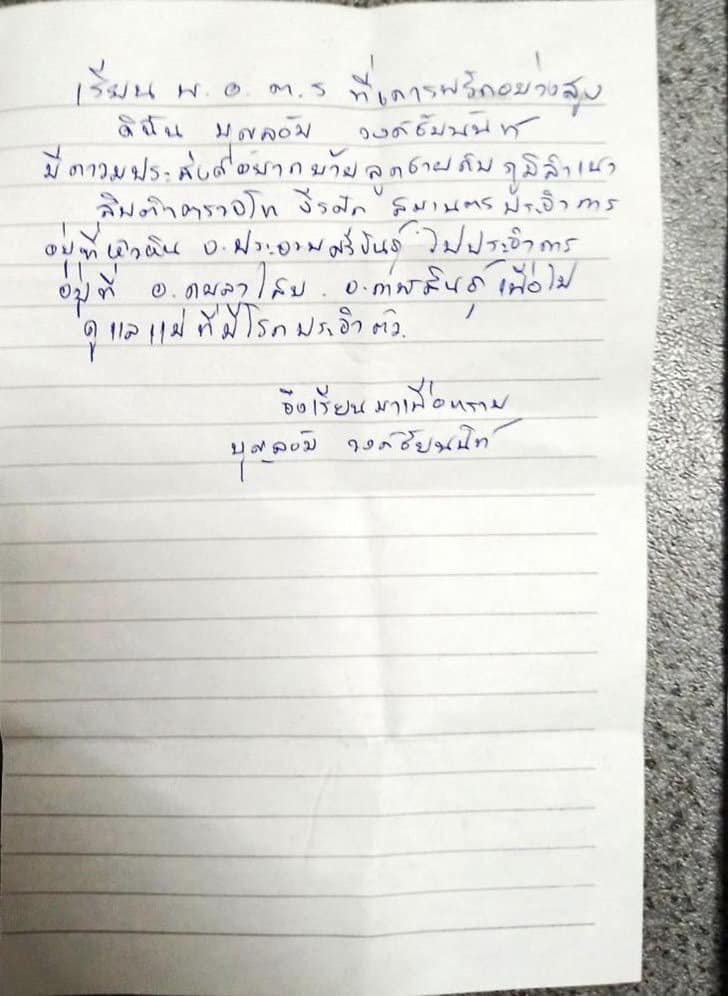 เรียน พ.อ.ต.ร ที่เคารพรักอย่างสูง
ดิฉัน บุศลอัม วงค์ชัยนันท์
มีความประสงค์อยากย้ายลูกชายคืนภูมิลำเนา
สิบตำตรวจโท ธีรศัก สมเนตร ประจำการ
อยู่ที่หัวหิน จ.ประจวบคีรีขันธ์ ไปประจำการ
อยู่ที่ อ.กมลาไสย จ.กาฬสินธุ์ เพื่อไป
ดูแลแม่ ที่มีโรคประจำตัว.
จึงเรียนมาเพื่อทราบ
วงค์ชัยนนท์